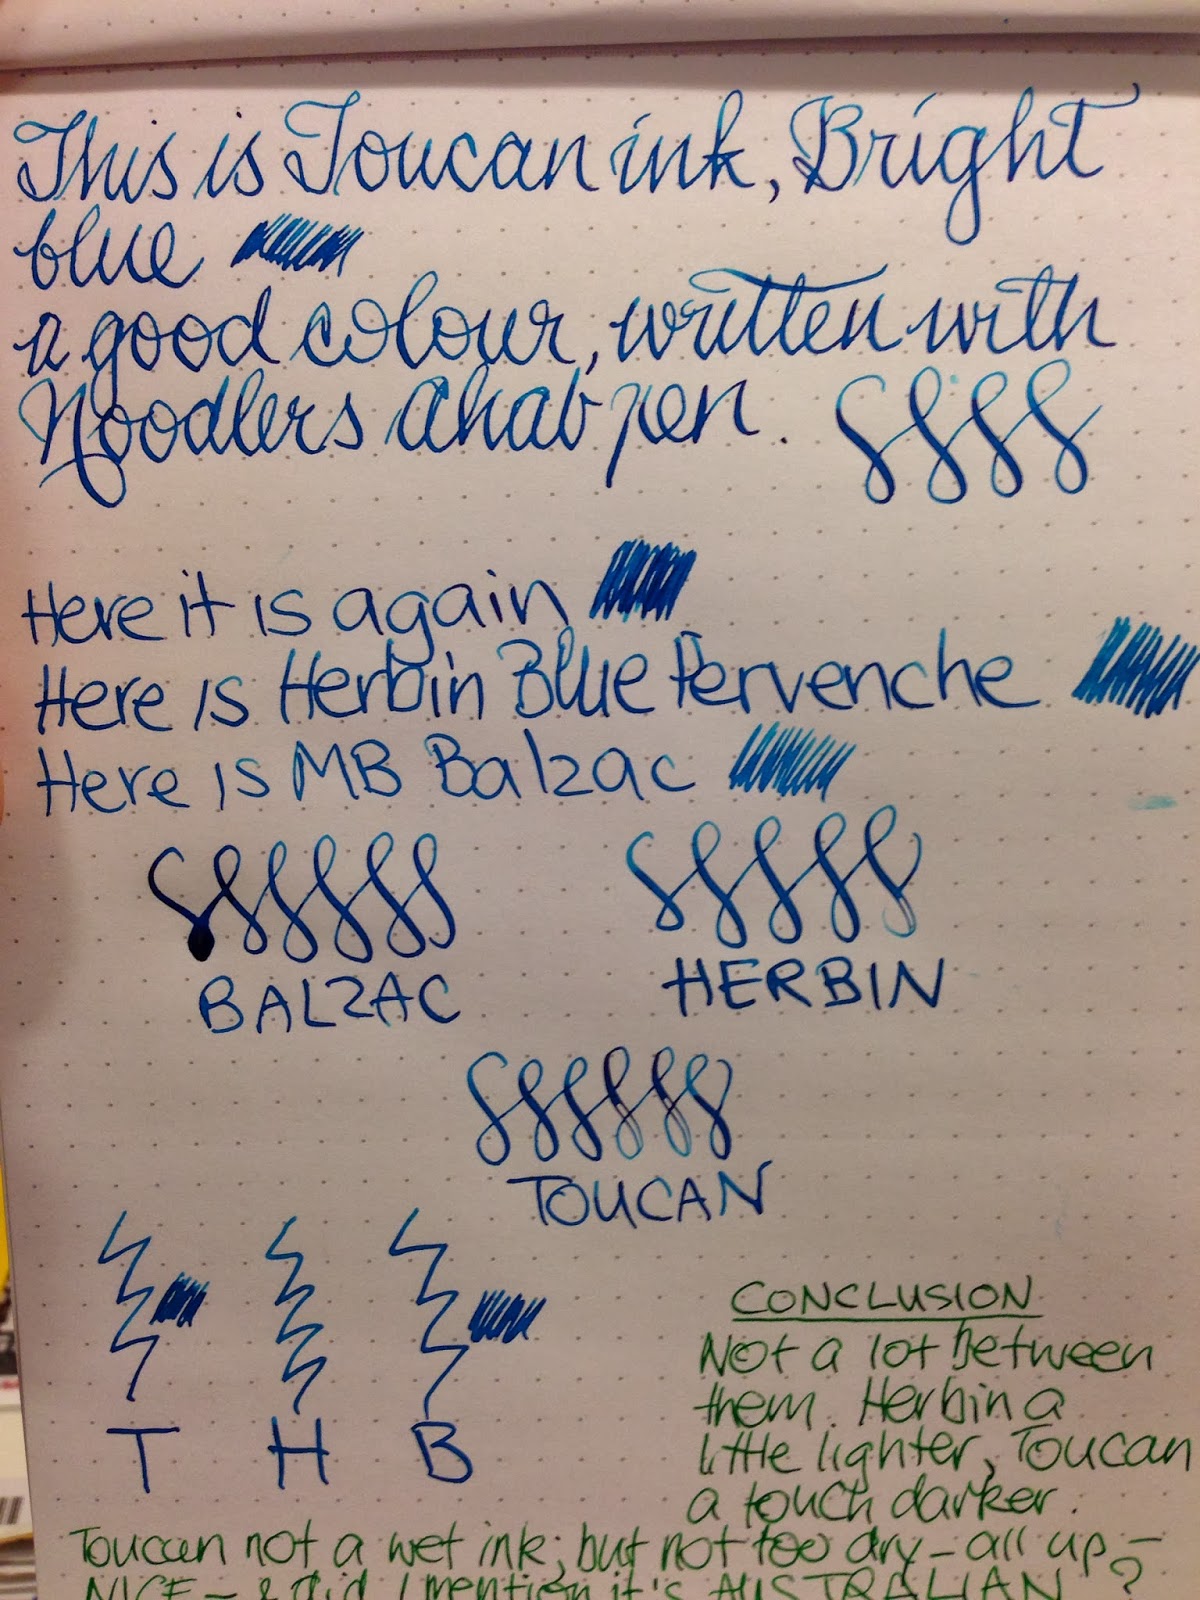 This is Toucan ink, Bright
blue
a good colour, written with
Noodlers Ahab pen.
Here it is again
Here is Herbin Blue Pervenche
Here is MB Balzac
BALZAC HERBIN
TOUCAN
T H B
CONCLUSION
Not a lot between
them. Herbin a
little lighter, Toucan
a touch darker.
Toucan not a wet ink; but not too dry - all up -
NICE - & did I mention it's AUSTRALIAN ?